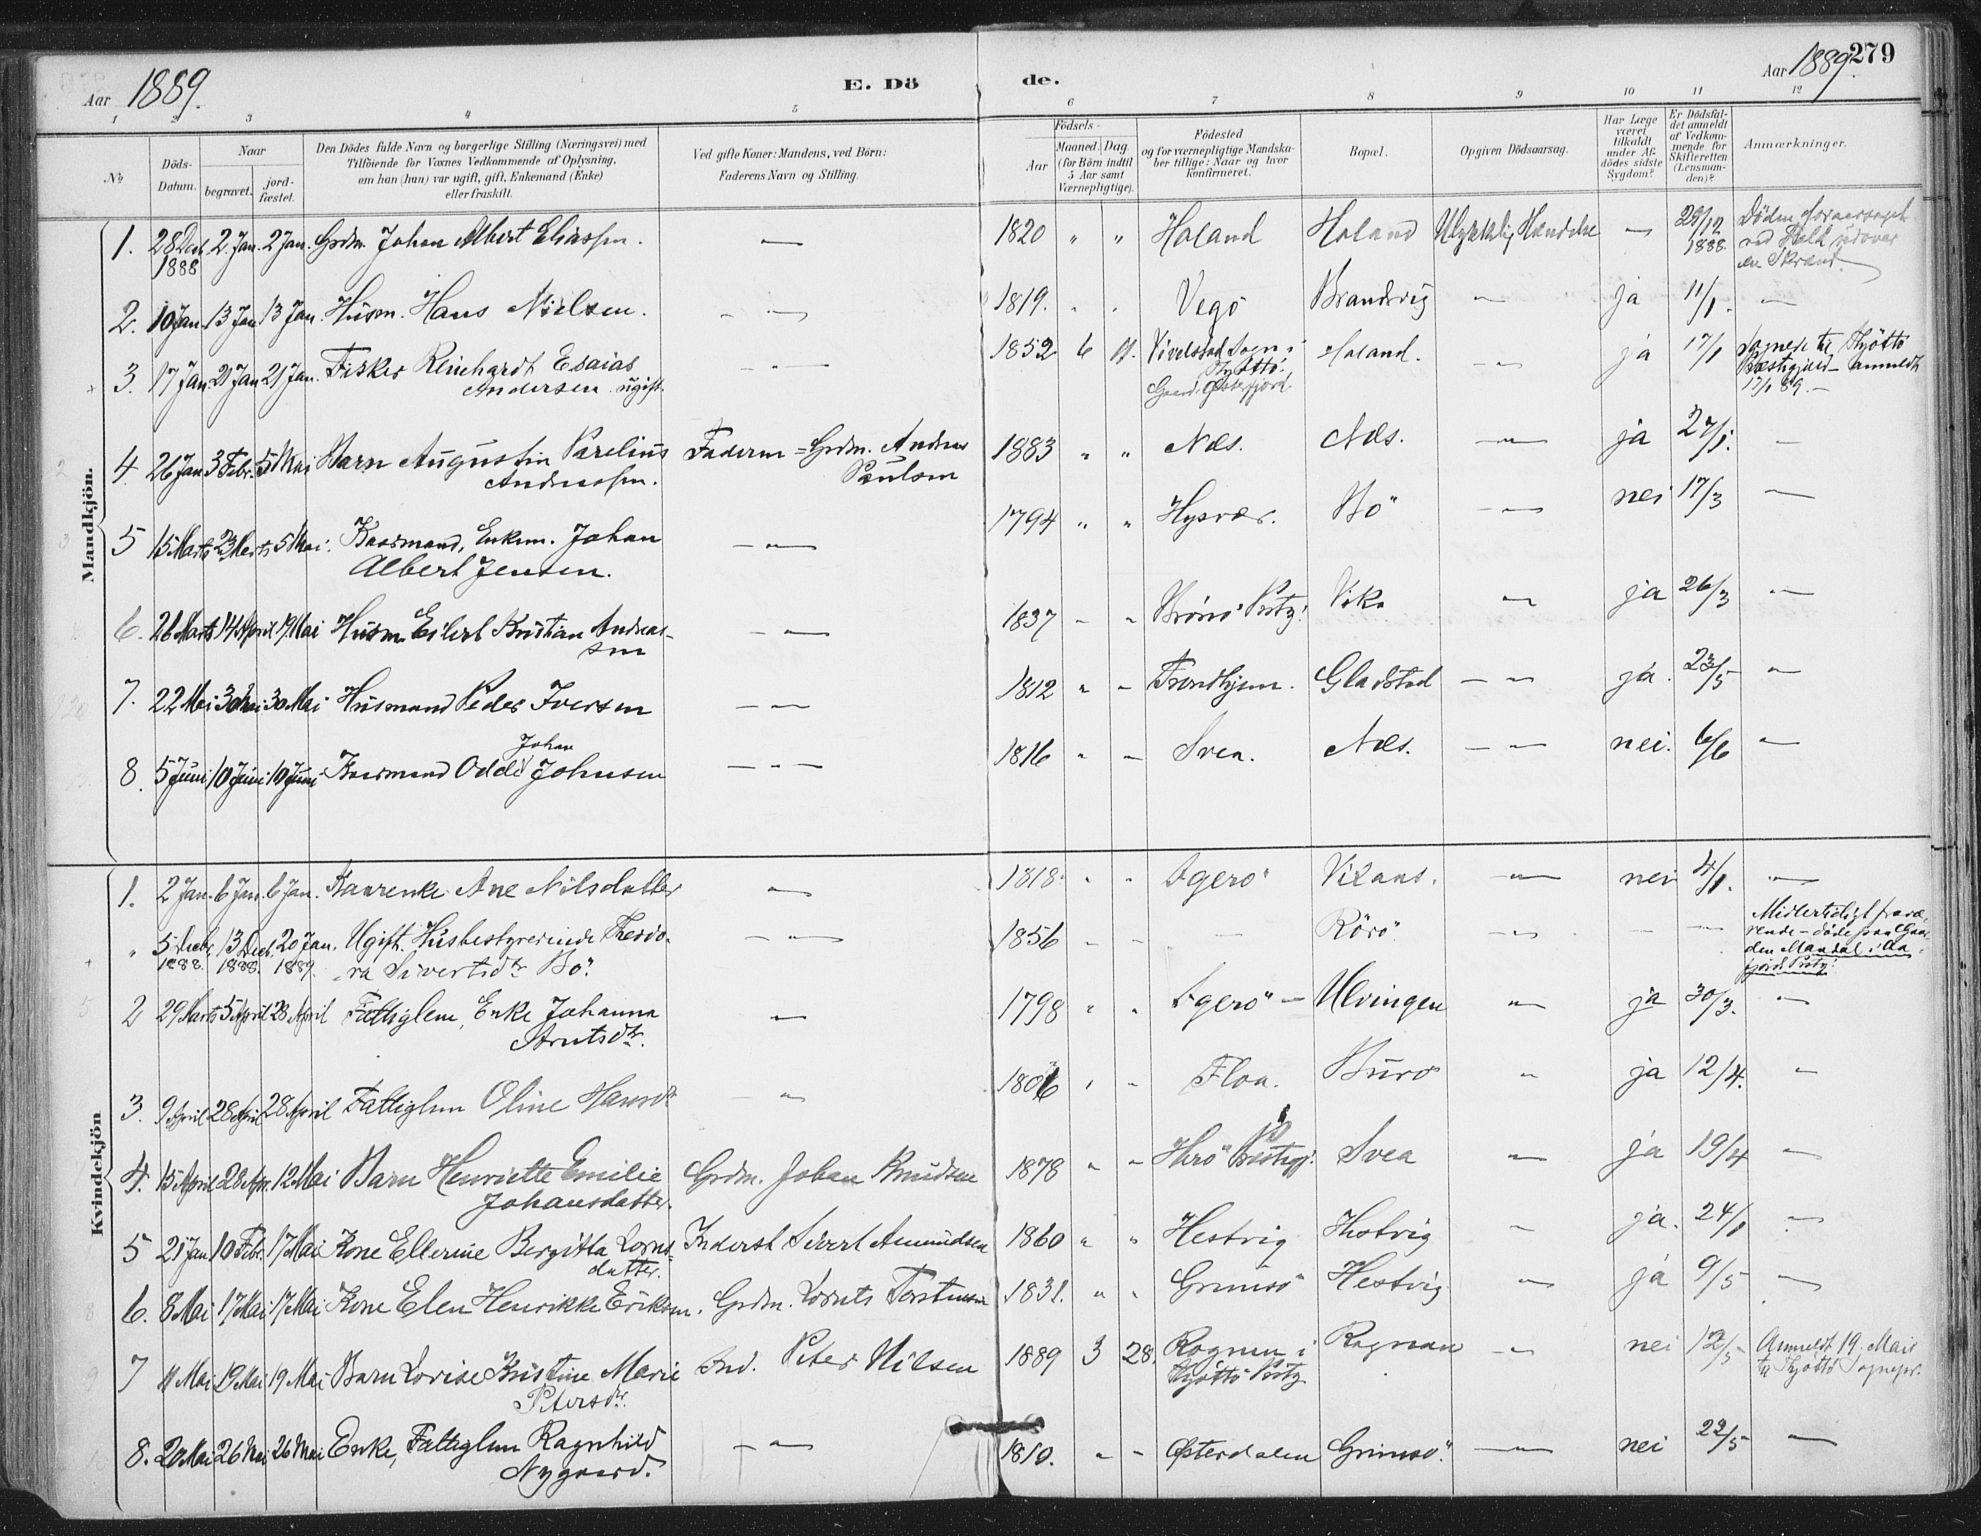 Aar 1889. E. Dö de. Aar 1889. 279
1 2 3 4 5 6 7 8 9 10 11 12
№ Döds-Datum. Naar begravet. jordfæstet. Den Dödes fulde Navn og borgerlige Stilling (Næringsvei) med Tilföiende for Voxnes Vedkommende af Oplysning, om han (hun) var ugift, gift, Enkemand (Enke) eller fraskilt. Ved gifte Koner: Mandens, ved Börn: Faderens Navn og Stilling. Födsels- Aar Maaned. Dag. (for Börn indtil 5 Aar samt Værnepligtige). Födested og for værnepligtige Mandskaber tillige: Naar og hvor konfirmeret. Bopæl. Opgiven Dödsaarsag. Har Læge været tilkaldt under Afdödes sidste Sygdom? Er Dödsfaldet anmeldt af Vedkommende for Skifteretten (Lensmanden)? Anmærkninger.
Mandkjön.
1. 28 Dec. 1888 2 Jan. 2 Jan. Grdm. Johan Albert Eliassen. — 1820 " " Holand Holand Ulykkelig Hændelse — 29/12 1888. Döden foraarsaget ved Fald udover en Skrænt.
2. 10 Jan. 13 Jan. 13 Jan. Husm. Hans Nielsen. — 1819. " " Vegö Brandsvig — ja 11/1. —
3. 17 Jan. 21 Jan. 21 Jan. Fisker Reinhardt Esaias
Andersen ugift. — 1852 6 Vivelstad Sogn i Tjöttö. Holand. — ja 17/1 Sognede til Tjöttö Præstegjeld — anmeldt 17/1 89. —
4. 26 Jan. 3 Febr. 5 Mai Barn Augustin Parelius
Andreassen. Faderen = Grdm. Andreas
Paulsen 1883 " " Næs. Næs. — ja 27/1. —
5 15 Marts 23 Marts 5 Mai. Kaarmand, Enkem. Johan
Albert Jensen. — 1794 " " Hysvær. Bö — nei 17/3 —
6. 26 Marts 14 April 19 Mai Husm Eilert Kristian Andreas-
sen — 1837 " " Brönö Prstg. Vika — ja 26/3 —
7. 22 Mai 30 Mai 30 Mai Husmand Peder Iversen — 1812 " " Trondhjem. Gladstad — ja. 23/5 —
8. 5 Juni 10 Juni 10 Juni Kaarmand Oddi Johan Johnsen — 1816 " " Svea. Næs. — nei. 6/6 —
Kvindekjön
1. 2 Jan. 6 Jan. 6 Jan. Kaarenke Ane Nilsdatter — 1818. " " Igerö Vikans. — nei 4/1. —
" 5 Decbr 1888. 13 Dec. 1888. 20 Jan. 1889. Ugift. Husbestyrerinde Theodo-
ra Sivertsdtr Bö. — 1856 — — — Rörö — — — Midlertidigt fravæ-
rende — döde paa Gaar-
den Mandal i Aa-
fjords Prstg.
2 29 Marts 5 April 28 April Fattiglem, Enke Johanna
Arntsdtr. — 1798 " " Igerö — Ulvingen — ja 30/3. —
3. 9 April 28 April 28 April Fattiglem Oline Hansdtr — 1806 " " Floa. Burö — ja 12/4. —
4. 15 April 28 Apr. 12 Mai Barn Henriette Emilie
Johansdatter. Grdm. Johan Knudsen 1878 " " Herö Præstegj. Svea — ja 19/4 —
5 21 Jan 10 Febr. 17 Mai Kone Ellerine Bergitta Lorns-
datter. Inderst Sivert Amundsen 1860 " " Hestvig Hestvig — ja. 24/1 —
6. 8 Mai 17 Mai 17 Mai Kone Elen Henrikke Eriksen. Grdm. Lornts Torstensen 1831. " " Grimsö Hestvig — ja 9/5 —
7 11 Mai 19 Mai 19 Mai Barn Lovise Kristine Marie
Petersdtr. Ind. Peter Nilsen 1889 3 28. Rognen i
Tjöttö Prstg Rognan — nei 12/5 Anmeldt 19. Mai
til Tjöttö Sognepr.
8. 20 Mai 26 Mai 26 Mai Enke, Fattiglem Ragnhild
Nygaard. — 1810. " " Österdalen Grimsö — nei 22/5 —